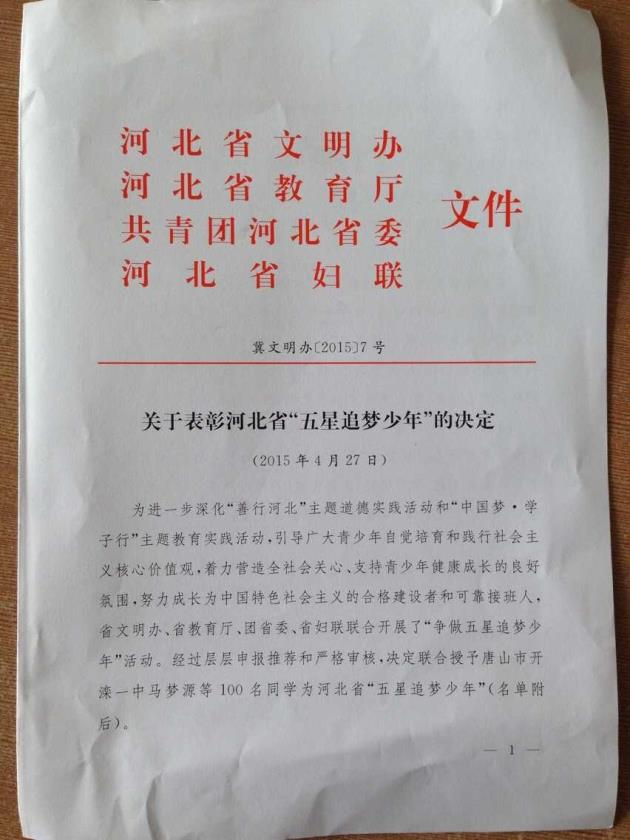 河北省文明办
河北省教育厅
共青团河北省委
河北省妇联
文件
冀文明办〔2015〕7号
关于表彰河北省“五星追梦少年”的决定
（2015年4月27日）
为进一步深化“善行河北”主题道德实践活动和“中国梦·学
子行”主题教育实践活动，引导广大青少年自觉培育和践行社会主
义核心价值观，着力营造全社会关心、支持青少年健康成长的良好
氛围，努力成长为中国特色社会主义的合格建设者和可靠接班人，
省文明办、省教育厅、团省委、省妇联联合开展了“争做五星追梦少
年”活动。经过层层申报推荐和严格审核，决定联合授予唐山市开
滦一中马梦源等100名同学为河北省“五星追梦少年”（名单附
后）。
— 1 —